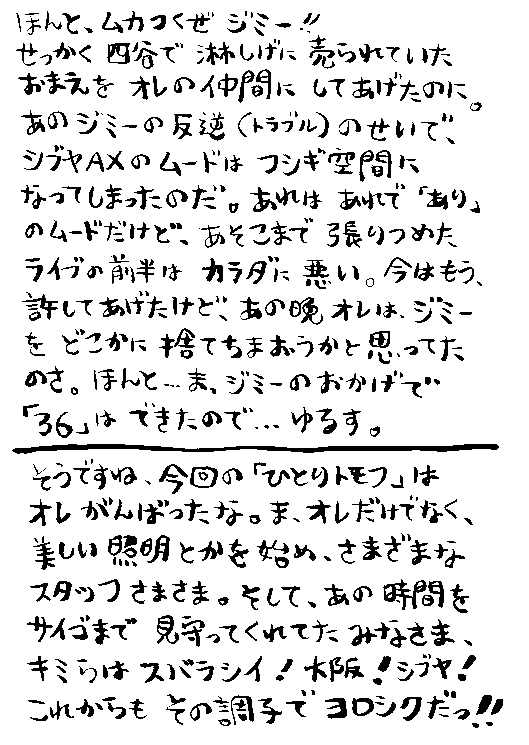 ほんと、ムカつくぜ ジミー!!
せっかく 四谷で 淋しげに 売られていた
おまえを オレの仲間に してあげたのに。
あのジミーの反逆(トラブル)のせいで、
シブヤAXのムードは フシギ空間に
なってしまったのだ。あれは あれで「あり」
のムードだけど、あそこまで 張りつめた
ライブの前半は カラダに 悪い。今はもう、
許してあげたけど、あの晩 オレは、ジミー
を どこかに 捨てちまおうかと思ってた
のさ。ほんと…ま、ジミーのおかげで
「36」は できたので… ゆるす。
そうですね、今回の「ひとりトモフ」は
オレ がんばったな。ま、オレだけでなく、
美しい 照明とかを始め、さまざまな
スタッフさまさま。そして、あの 時間を
サイゴまで 見守ってくれてた みなさま、
キミらは スバラシイ! 大阪!シブヤ!
これからも その調子で ヨロシクだっ!!